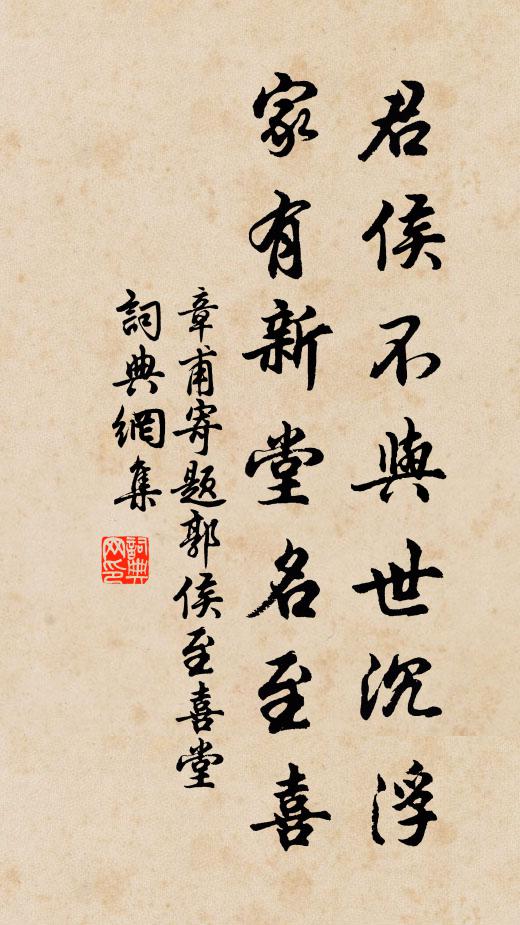 君侯不與世沉浮
家有新堂名至喜
章甫寄題郭侯至喜堂
詞典網集
詞典網印